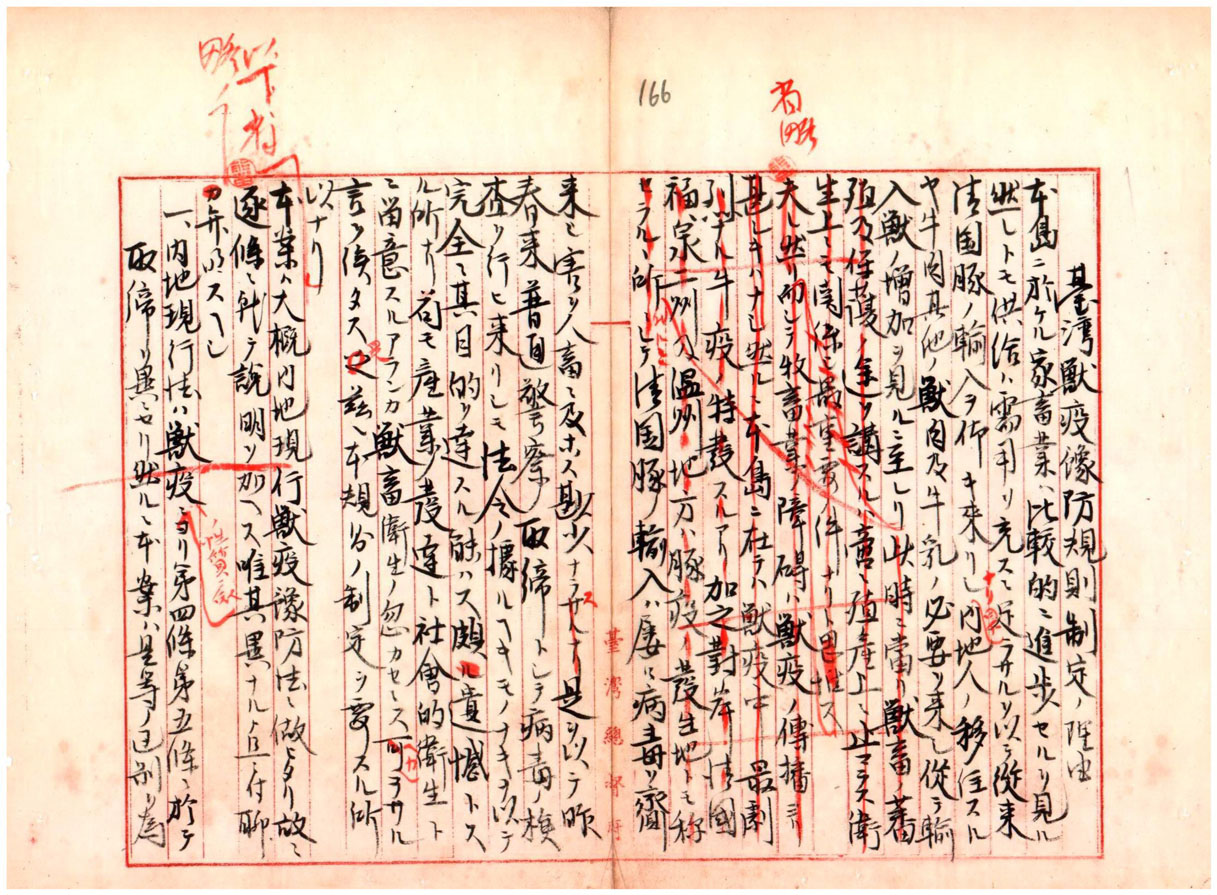 166
省略
臺湾獸疫豫防規則制定ノ理由
本島ニ於ケル家畜業ハ比較的ニ進歩セルヲ見ル
然レトモ供給ハ需用ヲ充スニ足ラサルヲ以テ從来
清国豚ノ輸入ヲ仰キ来リシ内地人ノ移住スル
ヤ牛肉其他ノ獸肉及牛乳ノ必要ヲ来シ從テ輸
入獸ノ増加ヲ見ルニ至レリ此時ニ當リ獸畜ノ蕃
殖乃保護ノ途ヲ講スルハ啻ニ殖産上ニ止マラス衛
生上ニモ関係シ最重要ノ件ナリト思惟ス
夫レ然リ而シテ牧畜業ノ障碍ハ獸疫ノ傳播ヨリ
甚シキハナシ然ルニ本島ニ在テハ獸疫中最劇
烈ナル牛疫ノ特發スルアリ加之對岸清國
福泉二州及温州地方ハ豚疫ノ發生地トモ称
セラルヽ所ニシテ清国豚ノ輸入ハ屡ハ病毒ヲ齎
臺灣總督府
来シ害ヲ人畜ニ及ホス尠少ナラサルナリ是ヲ以テ昨
春来普通警察取締トシテ病毒ノ検
査ヲ行ヒ来リシモ法令ノ據ルヘキモノナキヲ以テ
完全ニ其目的ヲ達スル能ハス頗ル遺憾トス
ル所ナリ苟モ産業ノ發達ト社會的衛生ト
ニ留意スルアランカ獸畜衛生ノ忽カセニス可ラサル
言ヲ俟タス之茲ニ本規則ノ制定ヲ要スル所
以ナリ
本案ハ大概内地現行獸疫豫防法ニ倣ヒタリ故ニ
逐條ニ就テ説明ヲ加ヘス唯其異ナル点ニ付聊
カ弁明スヘシ
一、内地現行法ハ獸疫ニ
ノ性質
ヨリ第四條第五條ニ於テ
取締ヲ異ニセリ然ルニ本案ハ是等ノ区別ヲ為